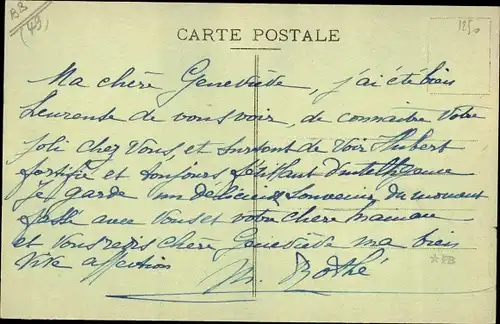 BB
(49)
1850
CARTE POSTALE
Ma chère Geneviève, j'ai été bien
heureuse de vous voir, de connaitre votre
joli chez vous, et surtout de voir Hubert
fortifié et toujours pétillant d'intelligence
Je garde un délicieux souvenir du moment
passé avec vous et votre chère maman
et vous redis chère Geneviève ma bien
vive affection
M. Bothé
*PB